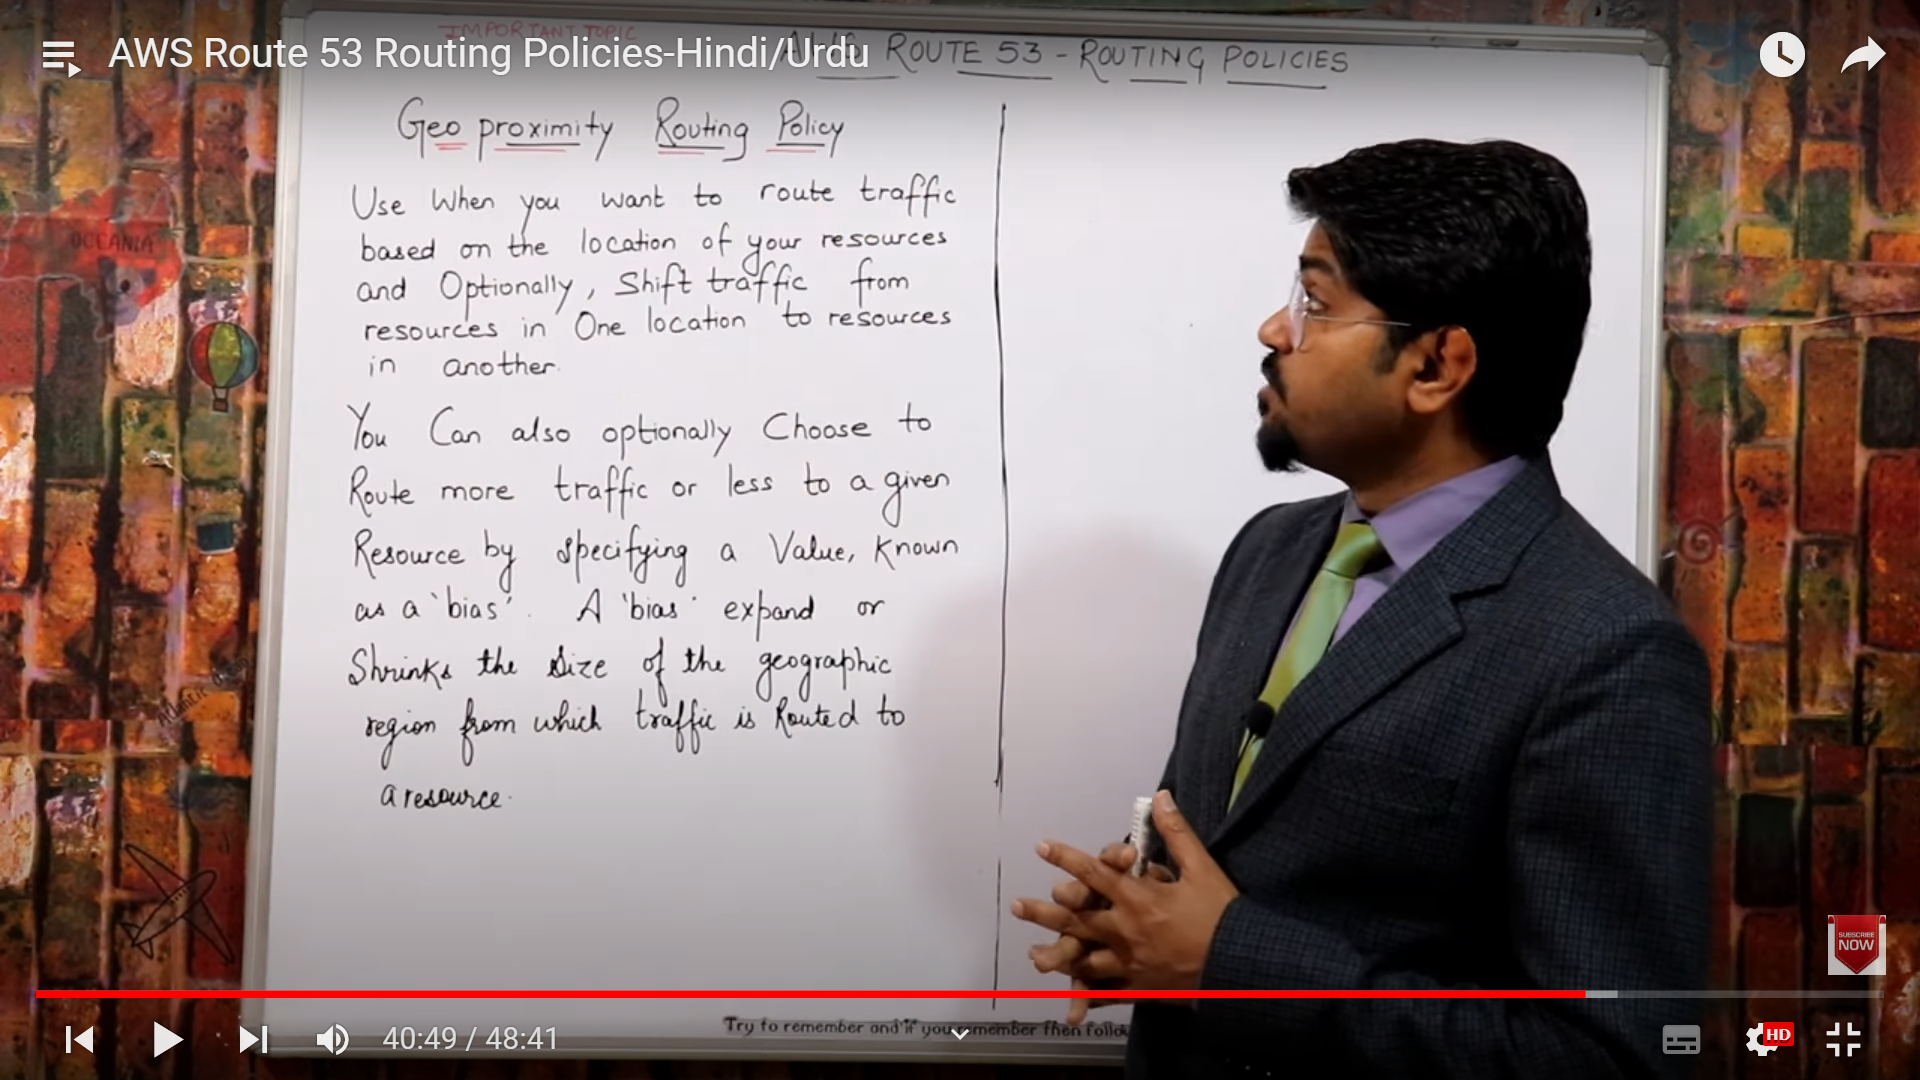 IMPORTANT TOPIC
AWS Route 53 Routing Policies-Hindi/Urdu
AWS ROUTE 53 - ROUTING POLICIES
Geo proximity Routing Policy
Use When you want to route traffic
based on the location of your resources
and Optionally, Shift traffic from
resources in One location to resources
in another.
You Can also optionally Choose to
Route more traffic or less to a given
Resource by specifying a Value, Known
as a 'bias'. A 'bias' expand or
Shrinks the Size of the geographic
region from which traffic is Routed to
a resource.
OCEANIA
SUBSCRIBE
NOW
Try to remember and if you remember then
40:49 / 48:41
HD